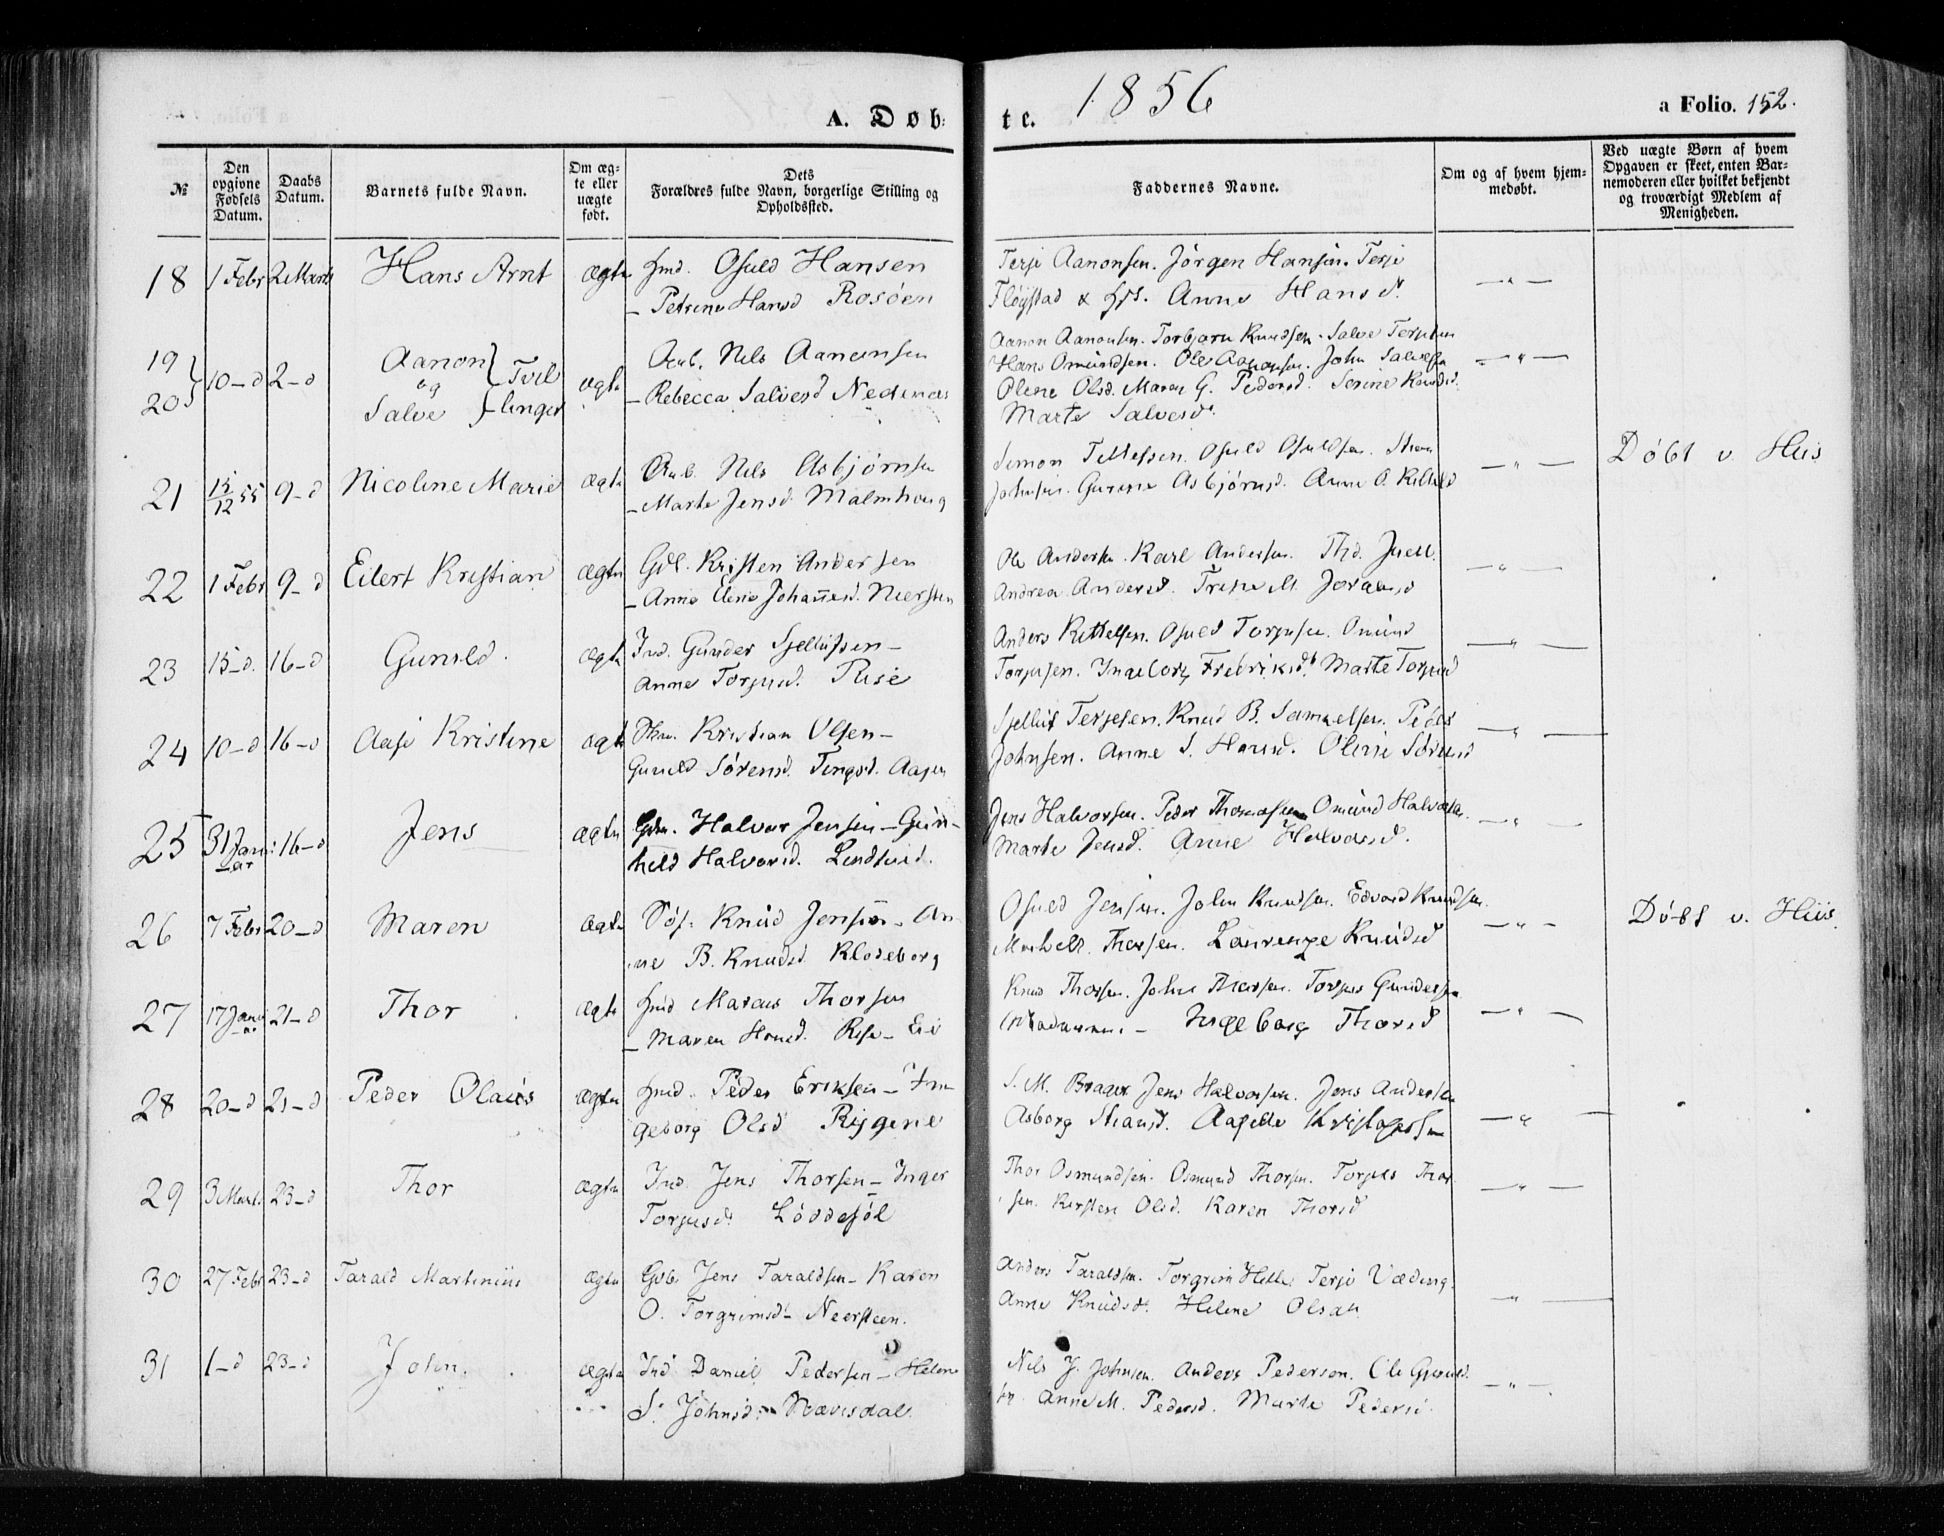 A. Døb-
te. 1856 a Folio. 152.
№ Den opgivne Fødsels Datum. Daabs Datum. Barnets fulde Navn. Om ægte eller uægte født. Dets Forældres fulde Navn, borgerlige Stilling og Opholdssted.
Faddernes Navne. Om og af hvem hjemmedøbt. Ved uægte Børn af hvem Opgaven er skeet, enten Barnemoderen eller hvilket bekjendt og troværdigt Medlem af Menigheden.
18 1 Febr 2 Marts Hans Arnt ægte Osuld Hansen
– Petrine Hansd Rosøen
Terje Aanonsen. Jörgen Hansen. Terje
Fløystad & Anne Hansd.
19 20 10–d 2–d Aanon og Salve } Tvillinger ægte Nils Aanonsen
– Rebecca Salvesd Nedenæs
Aanon Aanonsen. Torbjørn Knudsen. Salve Terjesen
Hans Omundsen. Ole Aanonsen. John Salvesen
Olene Olsd. Maren G. Pedersd. Serine Knudsd.
Marte Salvesd.
21 15/12 55 9–d Nicoline Marie ægte Nils Asbjörnsen
– Marte Jensd. Malmhoug
Simon Tellefsen. Osuld Osuldsen.
Johnsen. Gurine Asbjörnsd. Anne O.
Döbt v. Hiis
22 1 Febr 9–d Eilert Kristian ægte Gdb. Kristen Andersen
– Anne Elene Johannesd. Niersten
Ole Andersen. Karl Andersen. Thd. Juell
Andrea Andersd. Trine M.
23 15–d. 16–d Gunild. ægte Ind. Gunder Sjellufsen –
Anne Torjusd. Rise
Anders Kittelsen. Osuld Torjusen. Omund
Torjusen. Ingeborg Fredriksd. Marte Torjusd
24 10–d 16–d Aase Kristine ægte Kristian Olsen –
Gunild Sörensd.
Sjelluf Terjesen. Knud B. Samuelsen. Peder
Johnsen. Anne S. Hansd. Oline Sörensd
25 31 Januar 16–d Jens ægte Gdm. Halvor Jensen – Gun-
hild Halvorsd. Lindtveid.
Jens Halvorsen. Peder Thomassen Omund Halvorsen.
Marte Jensd. Anne Halvorsd.
26 7 Febr 20–d Maren ægte Söf: Knud Jensen – An
ne B. Knudsd Klodeborg
Osuld Jensen. John Knudsen. Edvard Knudsen.
Thorsen. Laurenze Knudsd
Döbt v. Hiis
27 17 Januar 21–d Thor ægte Marcus Thorsen
– Maren Hansd. Rise – Eie
Knud Thorsen. John Thorsen. Torjus Gundersen
Ingeborg Thorsd
28 20–d 21–d Peder Olaus ægte Peder Eriksen – In
geborg Olsd Rygene
S. M. Jens Halvorsen. Jens Andersen
Asborg
29 3 Marts 23–d Thor ægte Ind. Jens Thorsen – Inger
Torjusd. Löddesöl
Thor Osmundsen. Osmund Thorsen. Torjus Thor
sen. Kirsten Olsd. Karen Thorsd
30 27 Febr 23–d Tarald Martinius ægte Gdb. Jens Taraldsen – Karen
O. Torgrimsd – Neersteen.
Anders Taraldsen. Torgrim Helle. Terje Væding.
Anne Knudsd. Helene Olsdtr
31 1–d 23–d John. ægte Ind Daniel Pedersen – Helene
S. Johnsd. – Nævisdal
Nils J. Johnsen. Anders Pederson. Ole
Anne M. Pedersd. Marte Pedersd.